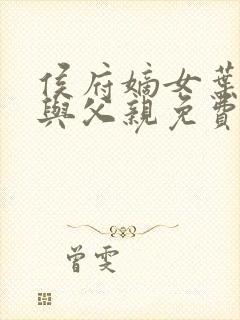 侯府嫡女葉
與父親免費
曾雯